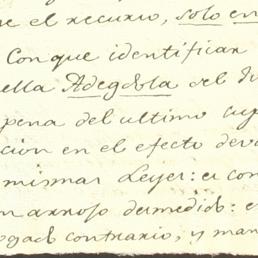 e el recurso, solo en
Con que identificar
ella Adegdola del
pena del ultimo sup
ción en el efecto devo
mismas Leyes: es con
n arrojo desmedido: e
ogado contrario, y man